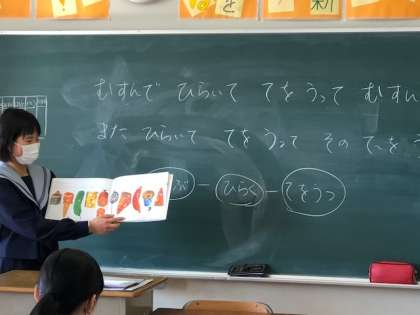 を 新
むすんで ひらいて てをうって むすん
また ひらいて てをうって そのてを
ぶ－ひらく－てをうつ